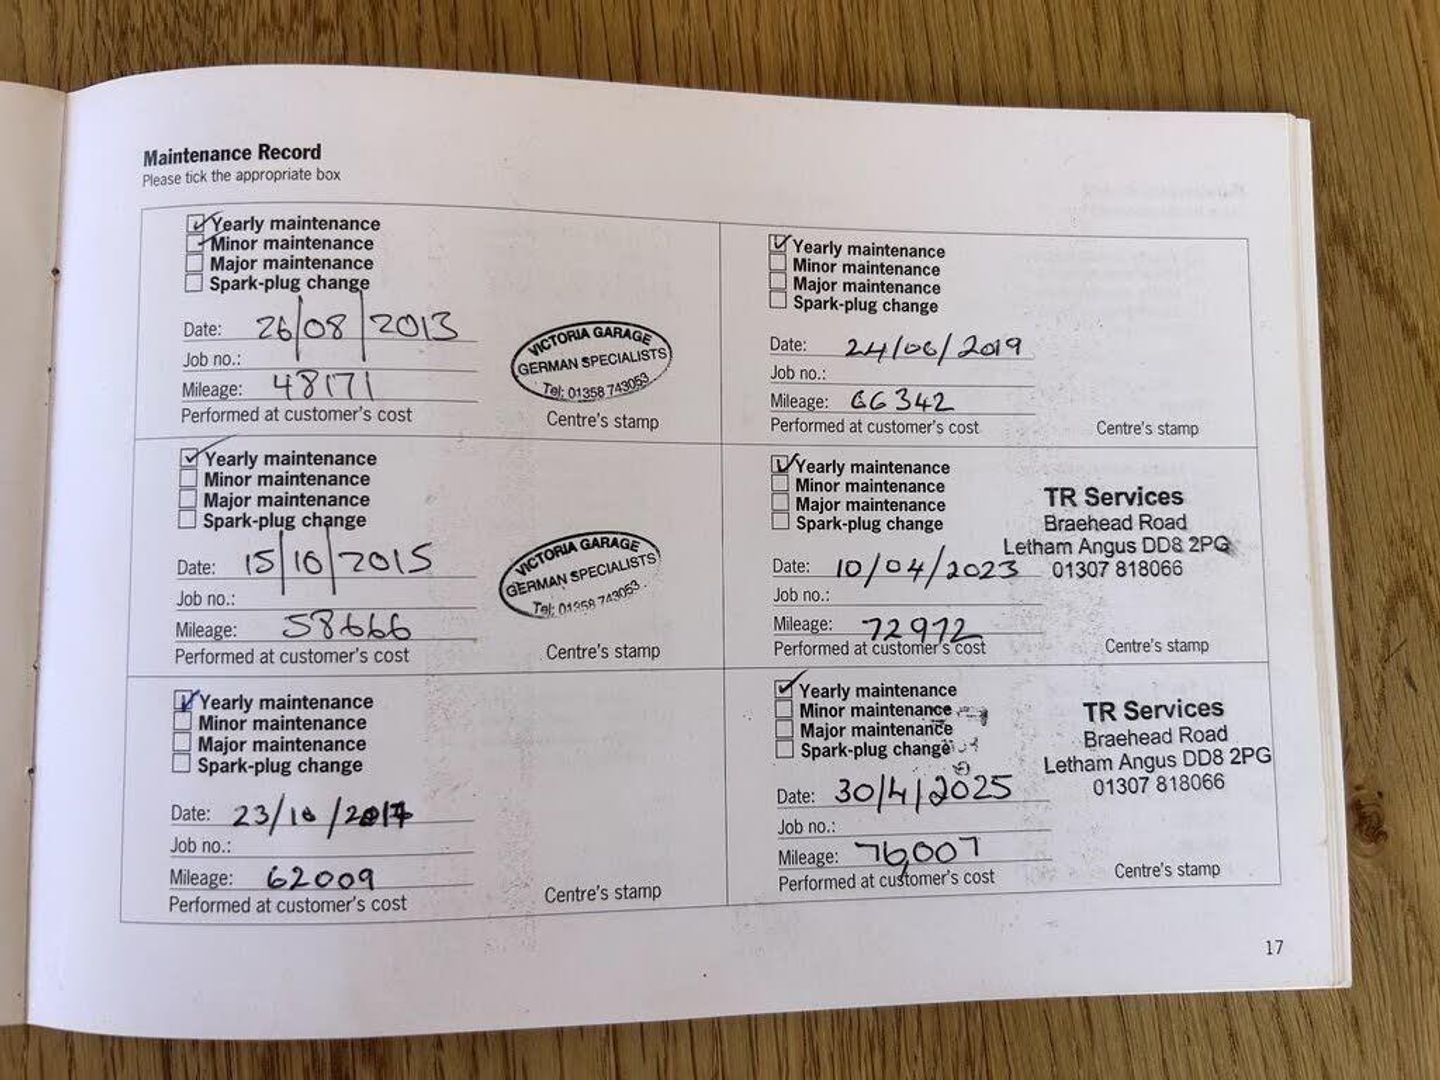 Maintenance Record
Please tick the appropriate box
Yearly maintenance
Minor maintenance
Major maintenance
Spark-plug change
Date: 26/08/2013
Job no.:
Mileage: 48171
Performed at customer's cost
VICTORIA GARAGE
GERMAN SPECIALISTS
Tel: 01358 743053
Centre's stamp
Yearly maintenance
Minor maintenance
Major maintenance
Spark-plug change
Date: 15/10/2015
Job no.:
Mileage: 58666
Performed at customer's cost
VICTORIA GARAGE
GERMAN SPECIALISTS
Tel: 01358 743053
Centre's stamp
Yearly maintenance
Minor maintenance
Major maintenance
Spark-plug change
Date: 23/10/2017
Job no.:
Mileage: 62009
Performed at customer's cost
Centre's stamp
Yearly maintenance
Minor maintenance
Major maintenance
Spark-plug change
Date: 24/06/2019
Job no.:
Mileage: 66342
Performed at customer's cost
Centre's stamp
Yearly maintenance
Minor maintenance
Major maintenance
Spark-plug change
Date: 10/04/2023
Job no.:
Mileage: 72972
Performed at customer's cost
TR Services
Braehead Road
Letham Angus DD8 2PG
01307 818066
Centre's stamp
Yearly maintenance
Minor maintenance
Major maintenance
Spark-plug change
Date: 30/4/2025
Job no.:
Mileage: 76,007
Performed at customer's cost
TR Services
Braehead Road
Letham Angus DD8 2PG
01307 818066
Centre's stamp
17